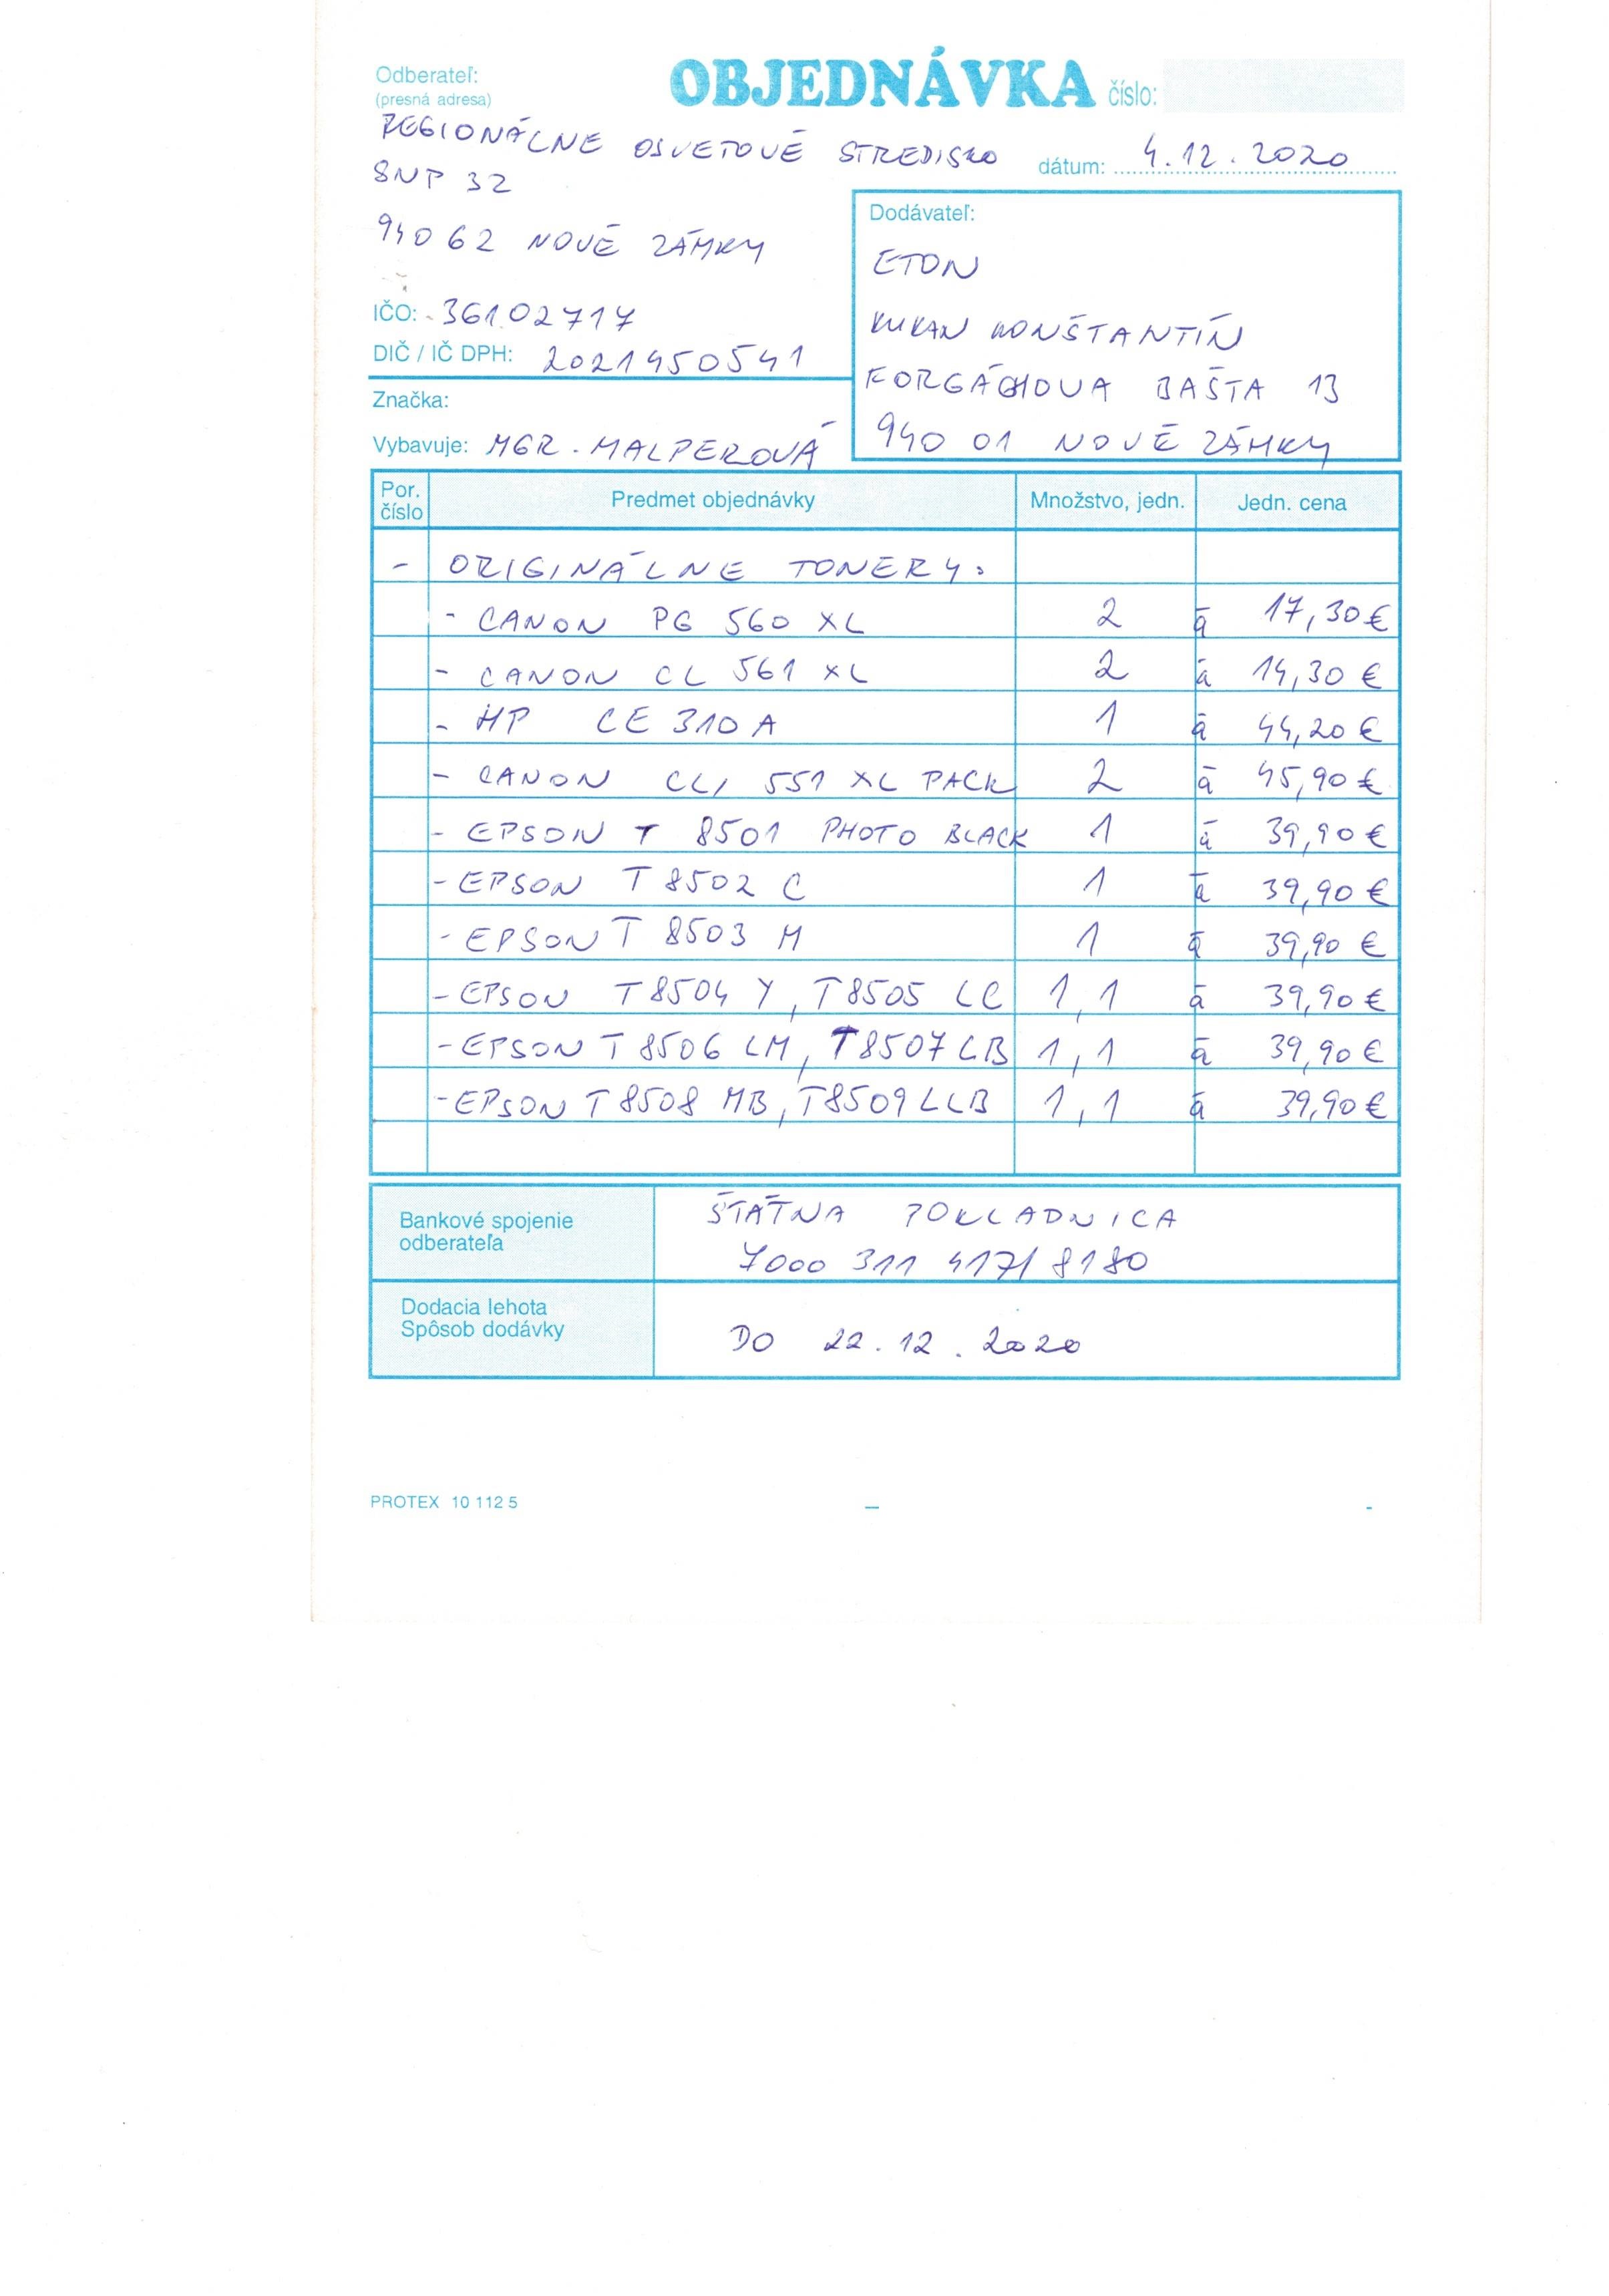 Odberateľ:
(presná adresa)
OBJEDNÁVKA číslo:
REGIONÁLNE OSVETOVÉ STREDISKO
dátum: 4.12.2020
SNP 32
940 62 NOVÉ ZÁMKY
IČO: 36102717
DIČ / IČ DPH: 2021450541
Značka:
Vybavuje: MGR. MALPEROVÁ
Dodávateľ:
ETON
KUKAN KONŠTANTÍN
FORGÁCHOVA BAŠTA 13
940 01 NOVÉ ZÁMKY
Por. číslo Predmet objednávky Množstvo, jedn. Jedn. cena
- ORIGINÁLNE TONERY:
- CANON PG 560 XL 2 á 17,30 €
- CANON CL 561 XL 2 á 14,30 €
- HP CE 310 A 1 á 44,20 €
- CANON CLI 551 XL PACK 2 á 45,90 €
- EPSON T 8501 PHOTO BLACK 1 á 39,90 €
- EPSON T 8502 C 1 á 39,90 €
- EPSON T 8503 M 1 á 39,90 €
- EPSON T8504 Y, T8505 LC 1,1 á 39,90 €
- EPSON T 8506 LM, T8507 LB 1,1 á 39,90 €
- EPSON T 8508 MB, T8509 LLB 1,1 á 39,90 €
Bankové spojenie
odberateľa
ŠTÁTNA POKLADNICA
7000 311 417/ 8180
Dodacia lehota
Spôsob dodávky
DO 22.12.2020
PROTEX 10 112 5